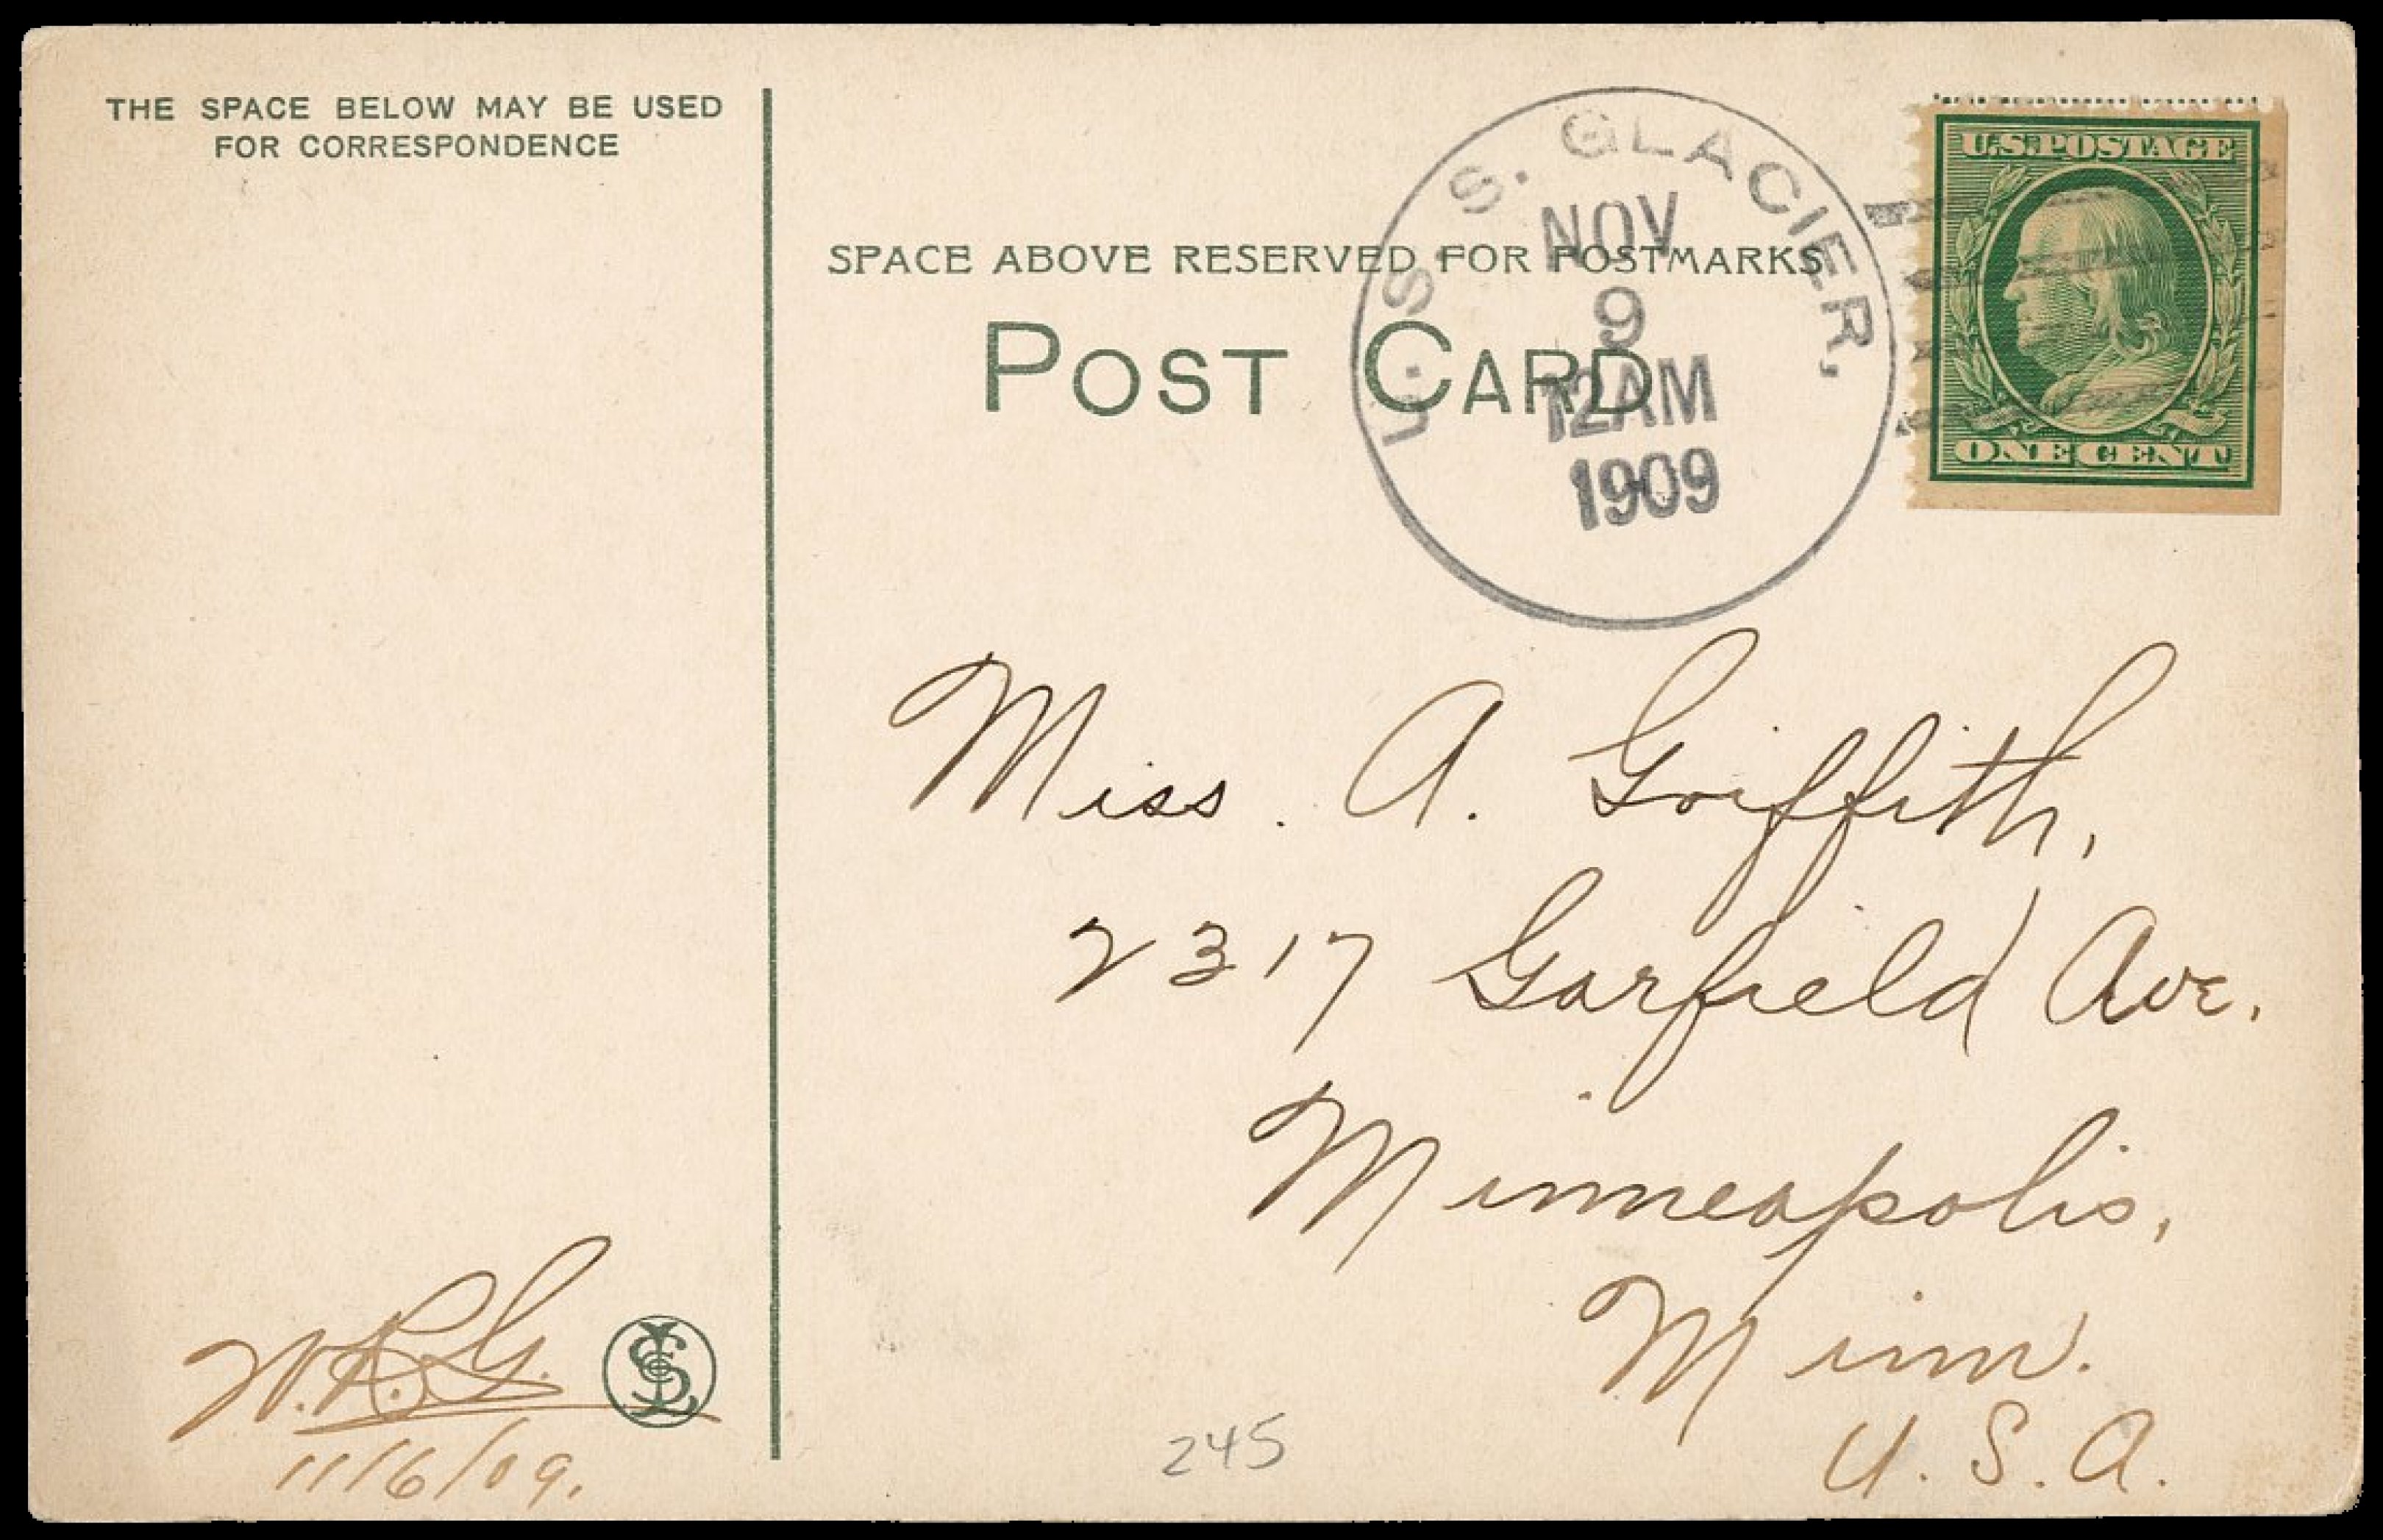 THE SPACE BELOW MAY BE USED
FOR CORRESPONDENCE
SPACE ABOVE RESERVED FOR POSTMARKS
POST CARD
U. S. S. GLACIER,
NOV
9
12AM
1909
U.S. POSTAGE
ONE CENT
Miss. A. Griffith,
2317 Garfield Ave.
Minneapolis,
Minn.
U. S. A.
W. R. G.
11/6/09.
245